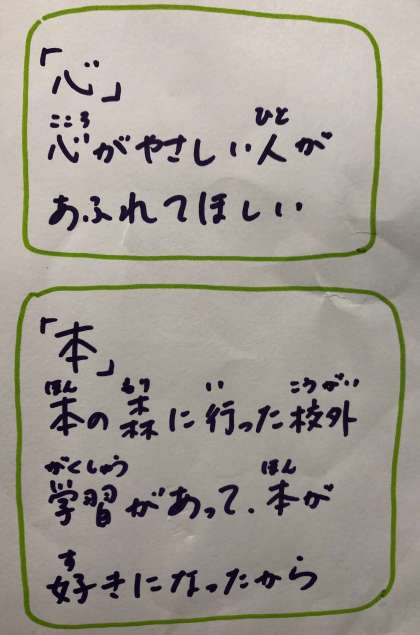 「心」
こころ ひと
心がやさしい人が
あふれてほしい
「本」
ほん もり い こうがい
本の森に行った校外
がくしゅう ほん
学習があって、本が
す
好きになったから